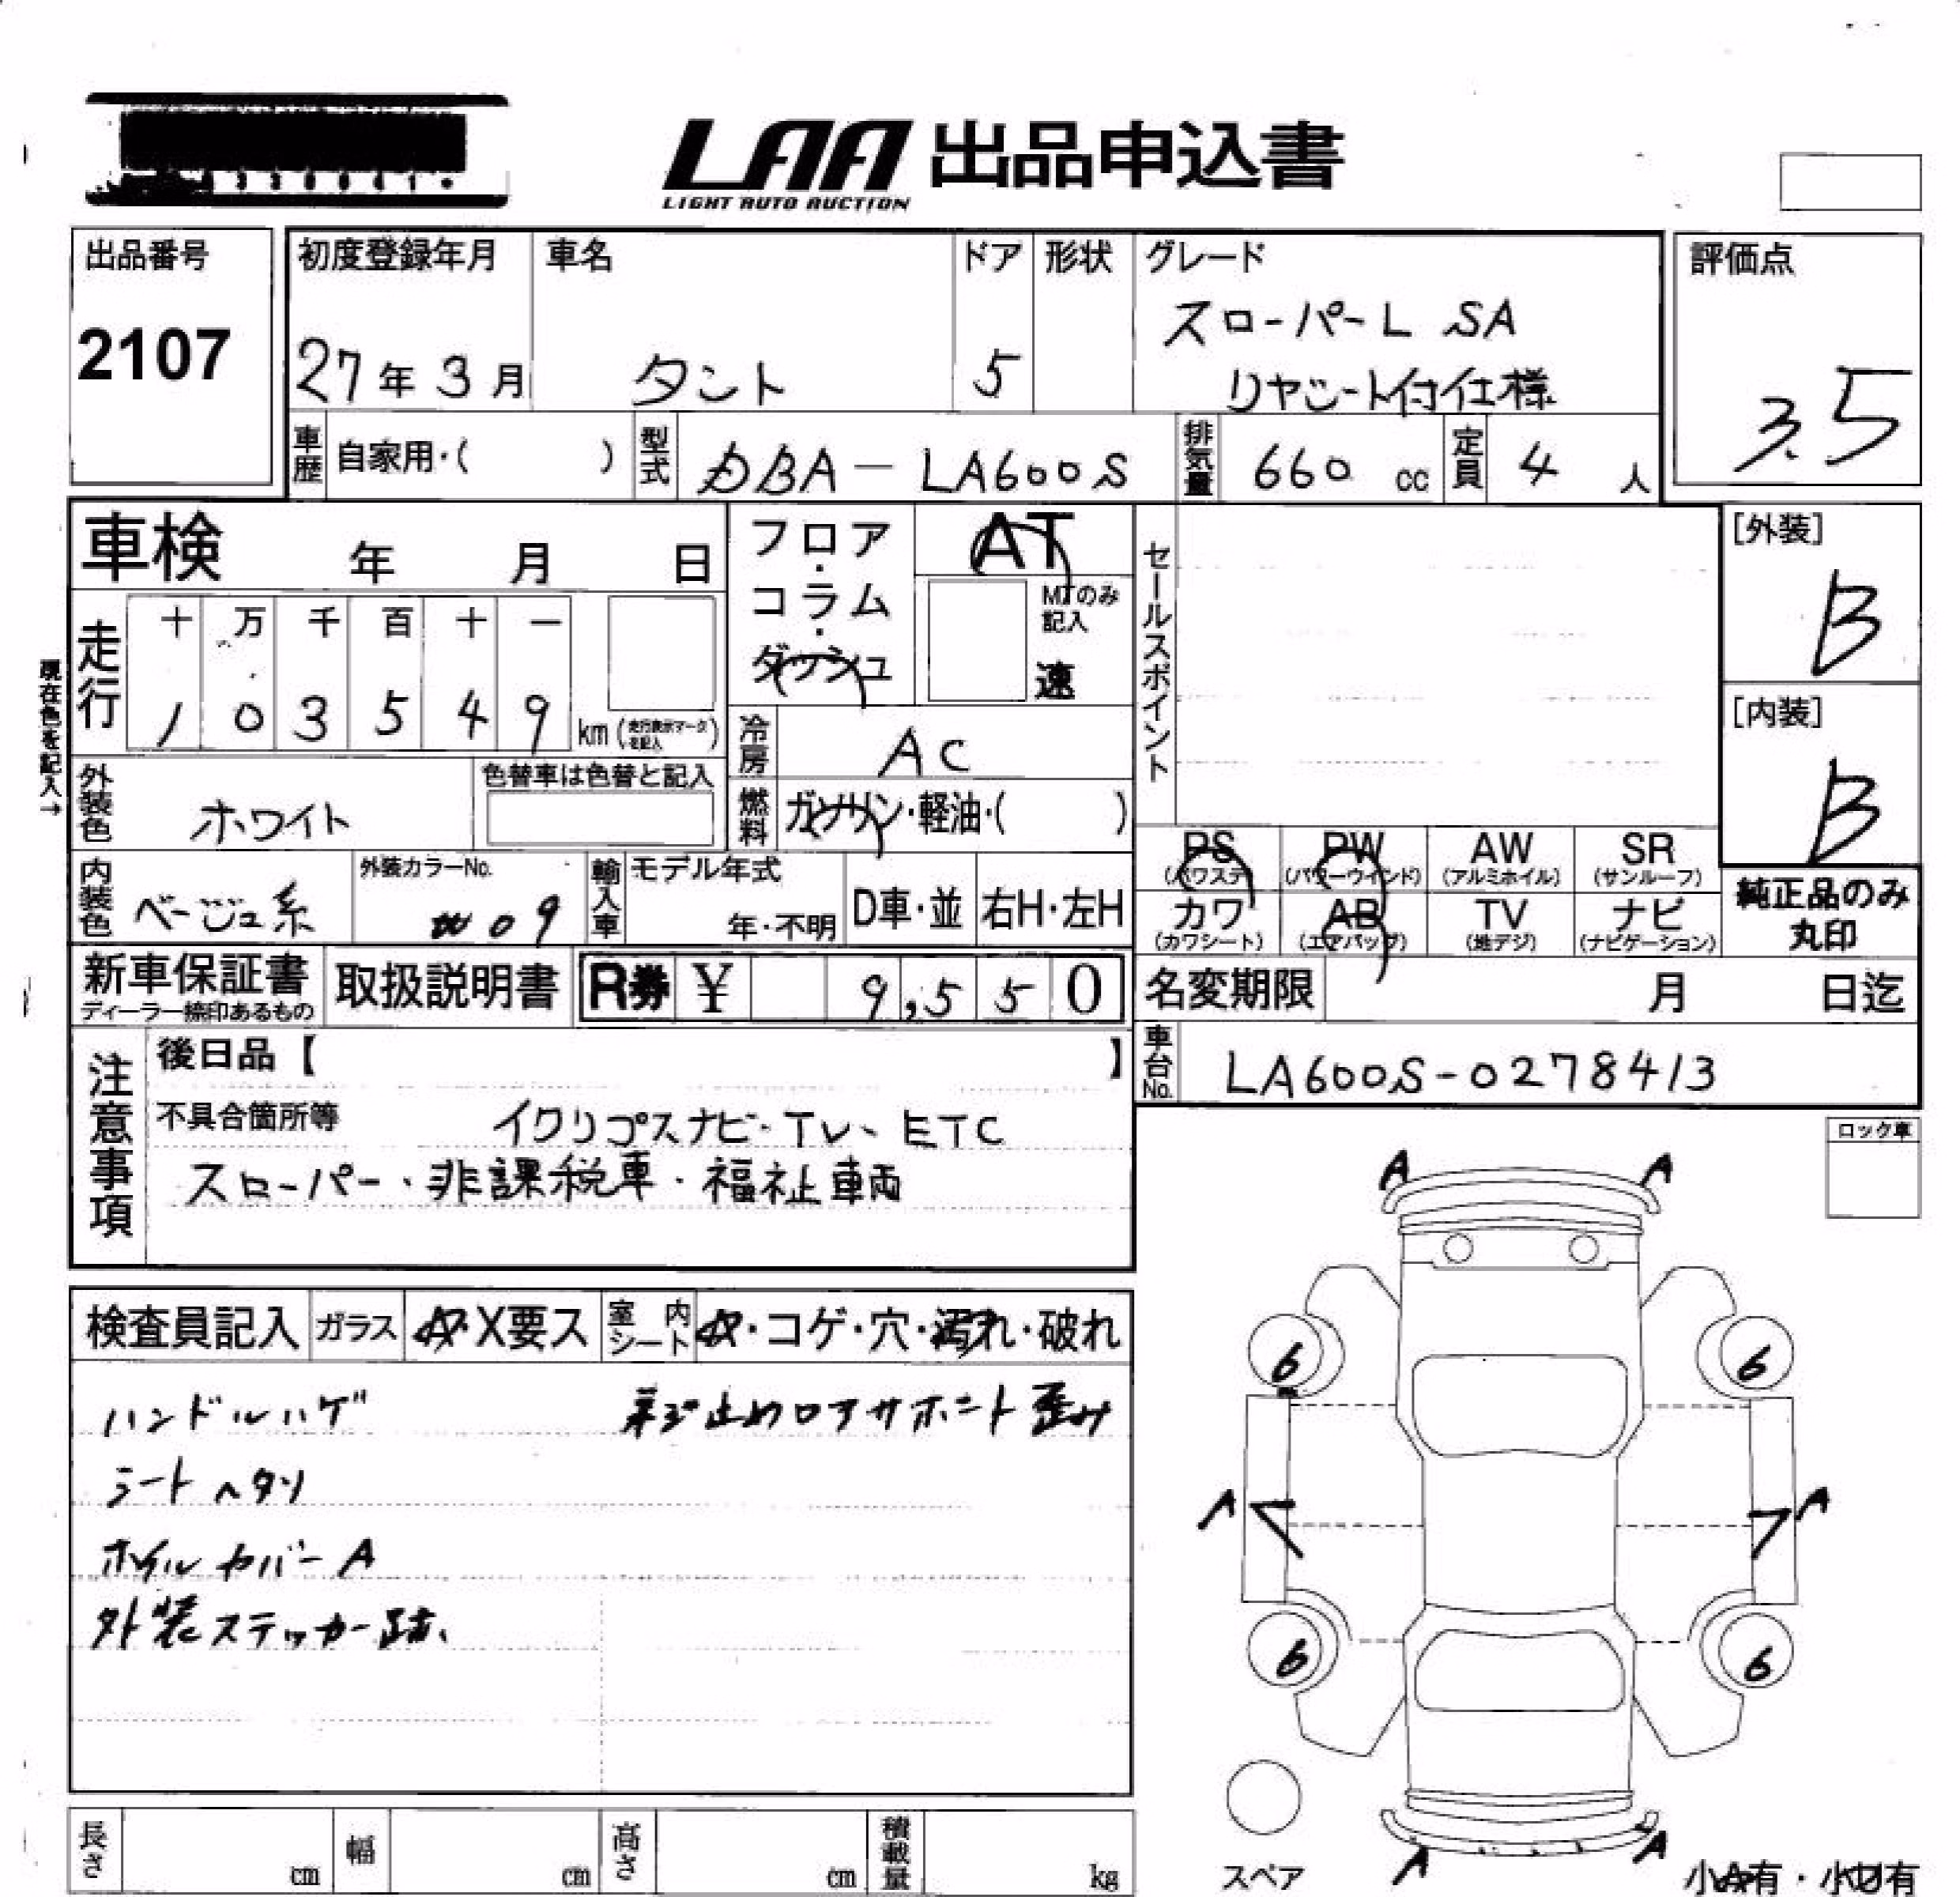 LAA 出品申込書
LIGHT AUTO AUCTION
出品番号
2107
初度登録年月
27年3月
車名
タント
ドア
5
形状
グレード
スローパーL SA
リヤシート付仕様
評価点
3.5
車歴 自家用・( )
型式 DBA-LA600S
排気量 660 cc
定員 4 人
車検 年 月 日
フロア・コラム・ダッシュ
AT
MTのみ記入
速
セールスポイント
[外装]
B
[内装]
B
現在色を記入→
走行
十 万 千 百 十 一
1 0 3 5 4 9 km (走行表示マークを記入)
冷房 AC
外装色 ホワイト
色替車は色替と記入
燃料 ガソリン・軽油・( )
PS (パワステ)
PW (パワーウインド)
AW (アルミホイル)
SR (サンルーフ)
内装色 ベージュ系
外装カラーNo.
W09
輸入車
モデル年式
年・不明
D車・並
右H・左H
カワ (カワシート)
AB (エアバッグ)
TV (地デジ)
ナビ (ナビゲーション)
純正品のみ
丸印
新車保証書
ディーラー捺印あるもの
取扱説明書
R券 ¥ 9,550
名変期限 月 日迄
車台No. LA600S-0278413
注意事項
後日品【 】
不具合箇所等 イクリプスナビ・TV、ETC
スローパー・非課税車・福祉車両
ロック車
検査員記入
ガラス
A・X要ス
室内シート
A・コゲ・穴・汚れ・破れ
ハンドルハゲ
錆止めロアサポート歪み
シートヘタリ
ホイルカバーA
外装ステッカー跡、
A A
6 6
A A
6 6
A A
スペア
小A有・小U有
長さ cm
幅 cm
高さ cm
積載量 kg